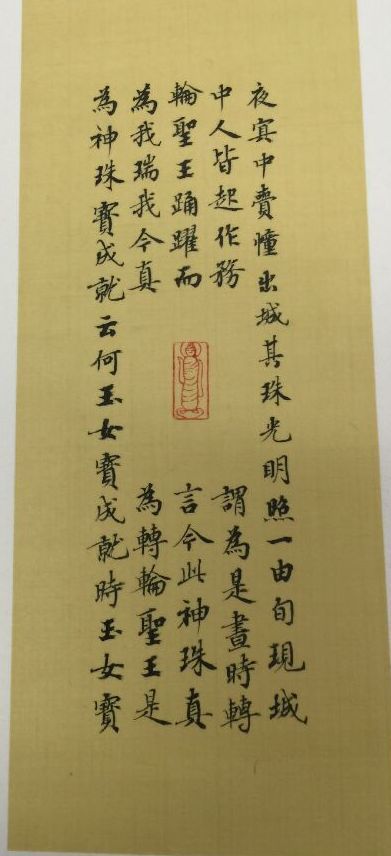 夜冥中賫幢出城其珠光明照一由旬現城
中人皆起作務謂為是晝時轉
輪聖王踊躍而言今此神珠真
為我瑞我今真為轉輪聖王是
為神珠寶成就云何玉女寶成就時玉女寶